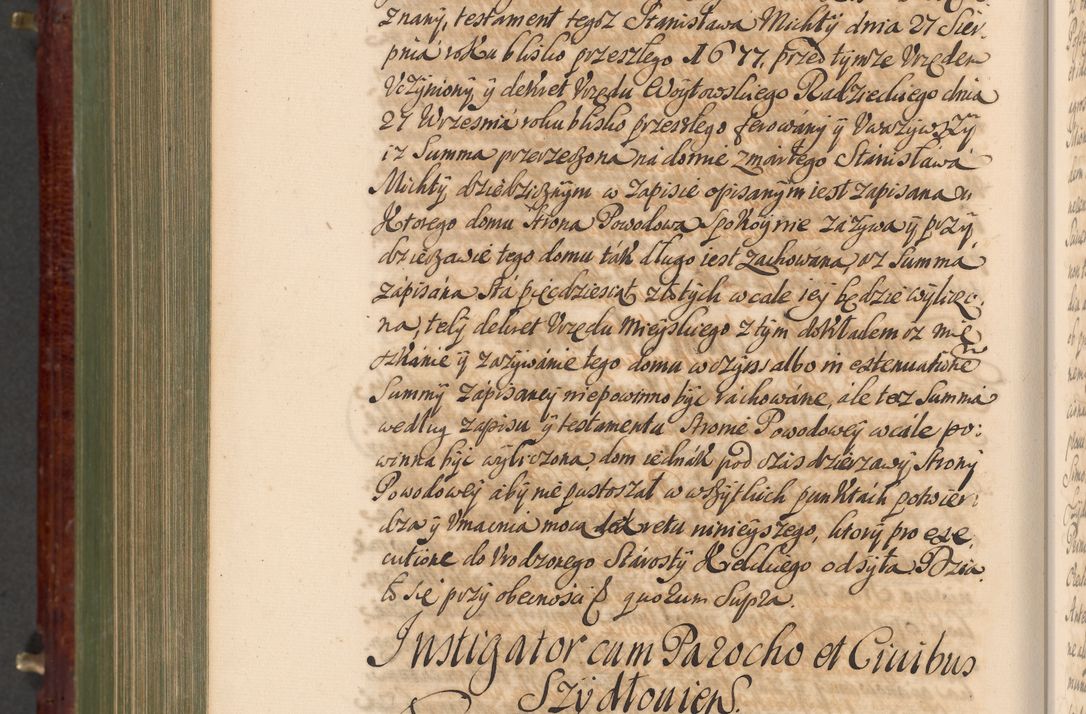 znany, testament tegoż Stanisława Michty dnia 27 Sier,
pnia roku blisko przeszłego 1677. przed tymże Urzędem
Uczyniony, y dekret Urzędu Woytowskiego Radzieckiego dnia
27 Wrzesnia roku blisko przeszłego ferowany y Uważywszy
iż Summa przerzeczona na domie zmarłego Stanisława
Michty dziedzicznym w zapisie opisanym iest zapisana u
Ktorego domu strona Powodowa spokoynie zażywa y przy
dzierżawie tego domu tak długo iest zachowana, aż Summa
zapisana sta pięcdziesiąt złotych wcale iey będzie wyliczo,
na, tely dekret Urzędu Mieyskiego z tym dokładem iż mie,
szkanie y zażywanie tego domu w czynsz albo in extenuationē
Summy zapisaney niepowinno byc rachowane, ale też Summa
według zapisu y testamentu stronie Powodowey wcale po:
winna byc wyliczona, dom iednak pod czas dzierżawy strony
Powodowey aby nie pustoszał w wszytkich punktach potwier
dza y Umacnia mocą dekretu ninieyszego, ktory pro exe,
cutione do Urodzonego Starosty Kieleckiego odsyła. Dzia
ło się przy obecnosci quorum Supra.
Instigator cum Parocho et Ciuibus
Szydłouiens.